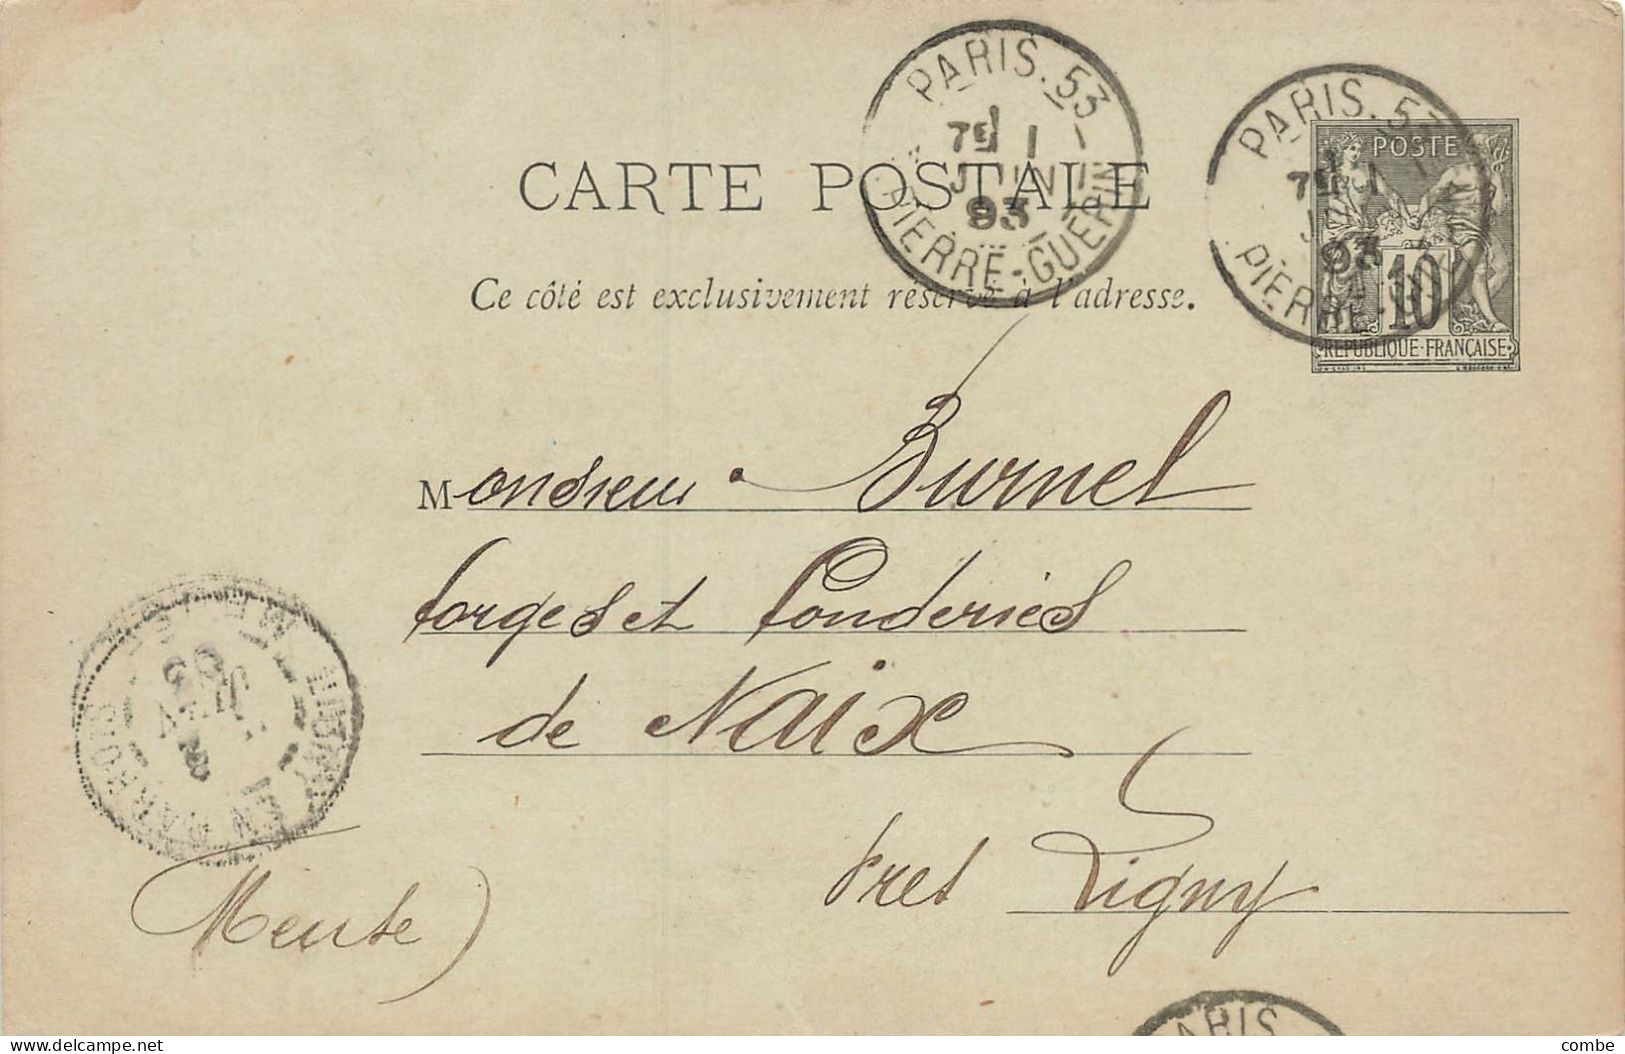 PARIS.53
7E 1
JUIN
93
PIERRE-GUERIN
PARIS.53
7E 1
93
PIERRE-GUERIN
POSTE
10
REPUBLIQUE·FRANÇAISE
CARTE POSTALE
Ce côté est exclusivement réservé à l'adresse.
Monsieur Burnel
forges et fonderies
de Naix
Pres Ligny
(Meuse)
LIGNY EN BARROIS
JUIN
93
PARIS
delcampe.net
combe